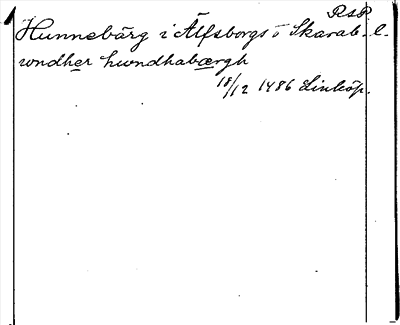 RAP.
Hunnebärg i Älfsborgs o Skarab. l.
wndher hwndhabærgh
18/12 1486 Linköp.